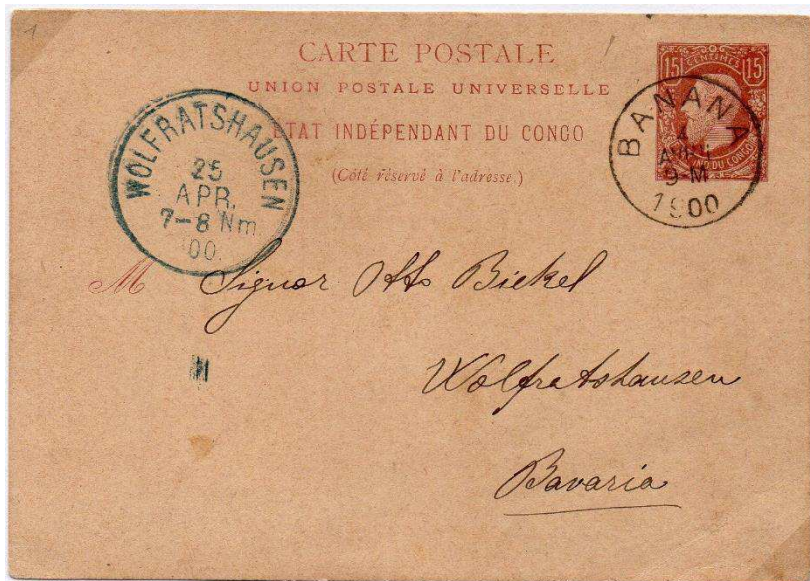 1
CARTE POSTALE
UNION POSTALE UNIVERSELLE
ÉTAT INDÉPENDANT DU CONGO
(Côté réservé à l'adresse.)
15 CENTIMES 15
IND DU CONGO
BANANA
4
9-M
1900
WOLFRATSHAUSEN
25
APR.
7-8 Nm
00.
M Signor Otto Bickel
Wolfratshausen
Bavaria